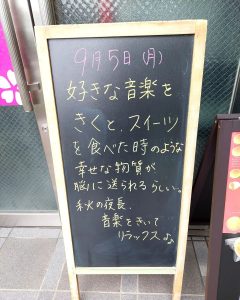 9月5日(月)
好きな音楽を
きくと、スイーツ
を食べた時のような
幸せな物質が
脳に送られるらしい。
秋の夜長、
音楽をきいて
リラックス♪♪